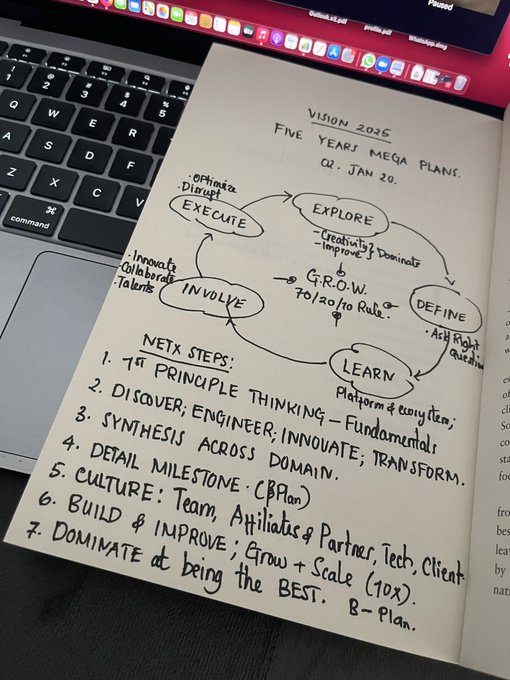 Paused
Outlook.v2.pdf
profile.pdf
WhatsApp.dmg
VISION 2025
FIVE YEARS MEGA PLANS.
02. JAN 20.
• Optimize
• Disrupt
EXECUTE
EXPLORE
- Creativity } Dominate
- Improve
G.R.O.W.
70/20/10 Rule.
DEFINE
• Ask Right
Question
• Innovate
• Collaborate
• Talents
INVOLVE
LEARN
Platform & ecosystem;
NETX STEPS:
1. 1ST PRINCIPLE THINKING – Fundamentals
2. DISCOVER; ENGINEER; INNOVATE; TRANSFORM.
3. SYNTHESIS ACROSS DOMAIN.
4. DETAIL MILESTONE. (βPlan)
5. CULTURE: Team, Affiliates & Partner, Tech, Client.
6. BUILD & IMPROVE; Grow + Scale (10x).
7. DOMINATE at being the BEST. B-Plan.
! 1
@ 2
# 3
$ 4
% 5
Q W E R
A S D F
Z X C V
⌘
command